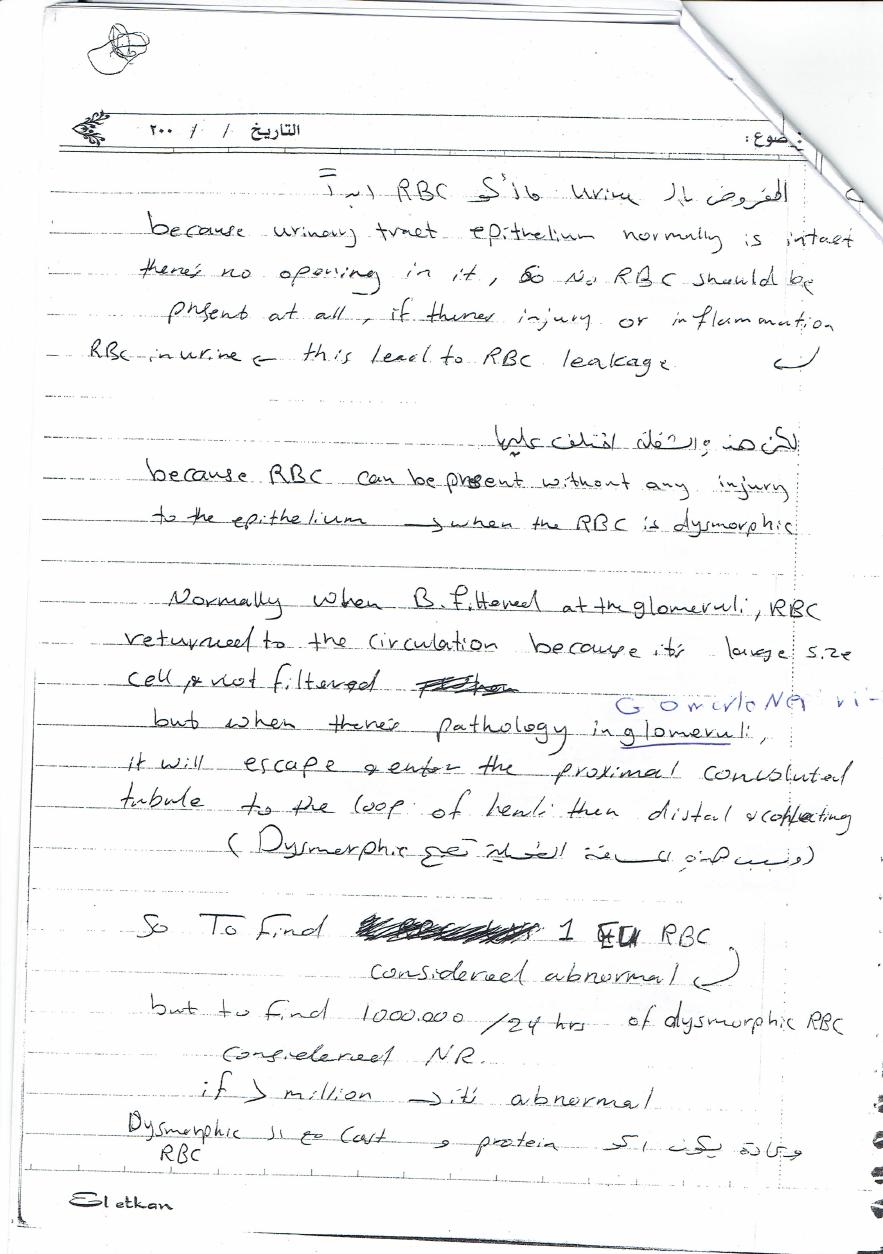 التاريخ / / ٢٠٠
ضوع:
المفروض بال urine ما أكو RBC ابداً
because urinary tract epithelium normally is intact
there's no opening in it, so No RBC should be
present at all, if theres injury or inflammation
this lead to RBC leakage ← RBC in urine
لكن هذه الشغلة اختلف عليها
because RBC can be present without any injury
to the epithelium → when the RBC is dysmorphic
Normally when B. filtered at the glomeruli, RBC
returned to the circulation because it's large size
cell & not filtered
but when there's pathology in glomeruli,
it will escape & enter the proximal convoluted
tubule to the loop of henli then distal & collecting
(وبسبب هذه المسافة الطويلة تصبح Dysmorphic)
So To find 1 RBC
considered abnormal
but to find 1000.000 /24 hrs of dysmorphic RBC
considered NR.
if > million → it's abnormal
وعادة يكون اكو protein و Cast مع ال Dysmorphic
RBC
El etkan